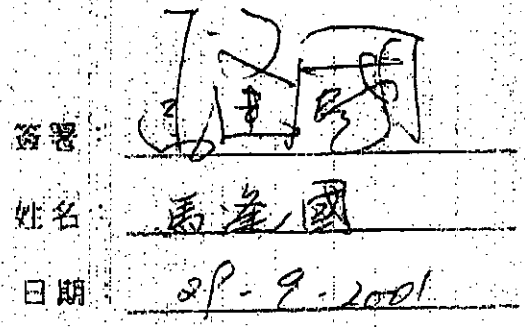 簽署：
姓名： 馬逢國
日期： 28-9-2001